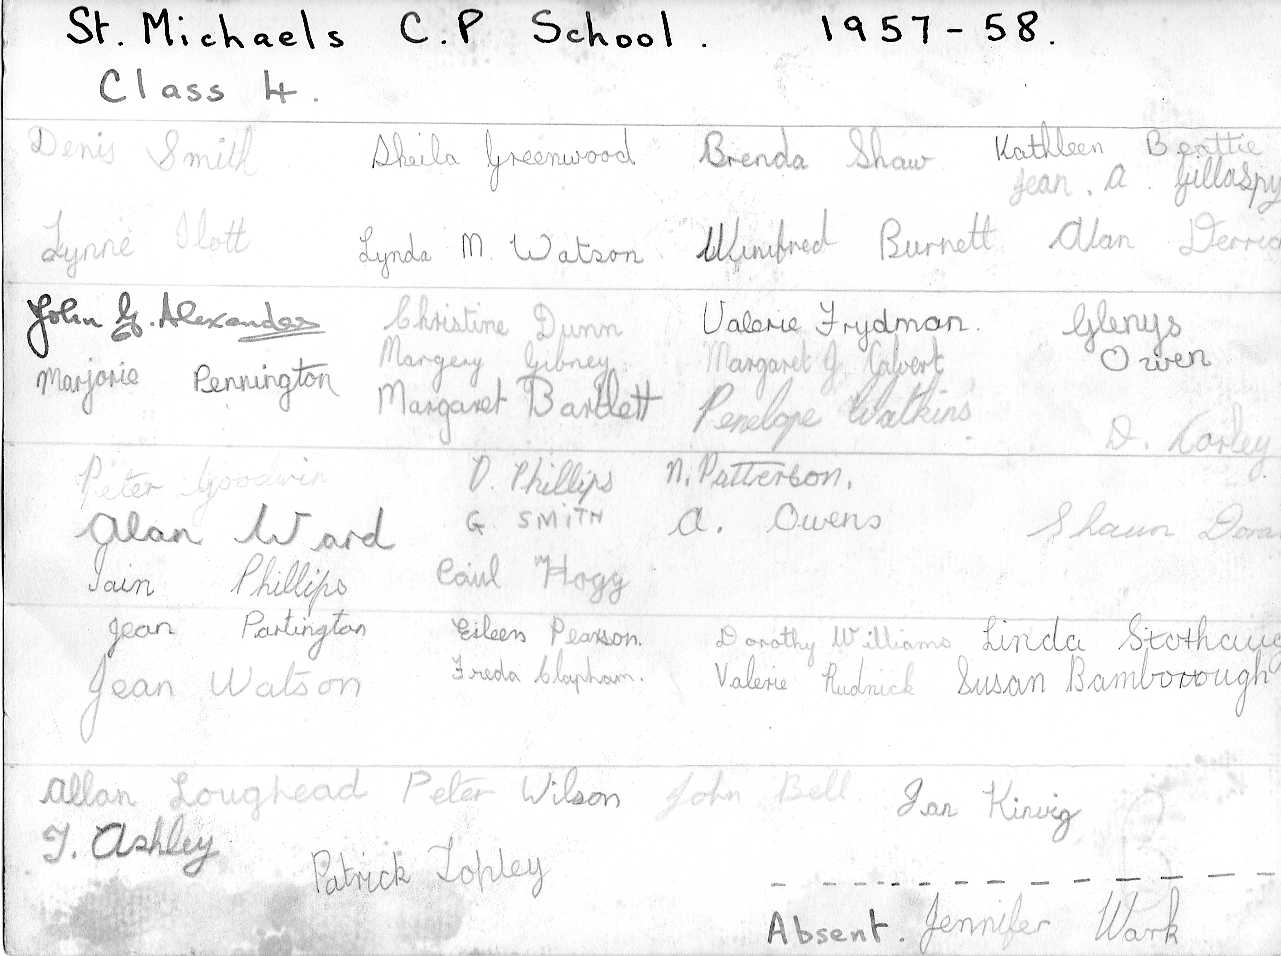 St. Michaels C.P School. 1957-58.
Class 4.
Denis Smith Sheila Greenwood Brenda Shaw Kathleen Beattie
Jean. A. Gillaspy
Lynne Ilott Lynda M. Watson Winifred Burnett Alan
John G. Alexander Christine Dunn Valerie Frydman. Glenys
Marjorie Pennington Margery Gibney. Margaret J. Calvert Owen
Margaret Bartlett Penelope Watkins
D.
Peter Goodwin D. Phillips N. Patterson.
Alan Ward G. SMITH A. Owens Shaun
Iain Phillips Paul Hogg
Jean Partington Eileen Pearson. Dorothy Williams Linda
Jean Watson Freda Clapham. Valerie Rudnick Susan Bamborough
Allan Loughead Peter Wilson John Bell Ian
T. Ashley
Patrick Topley
Absent. Jennifer Wark